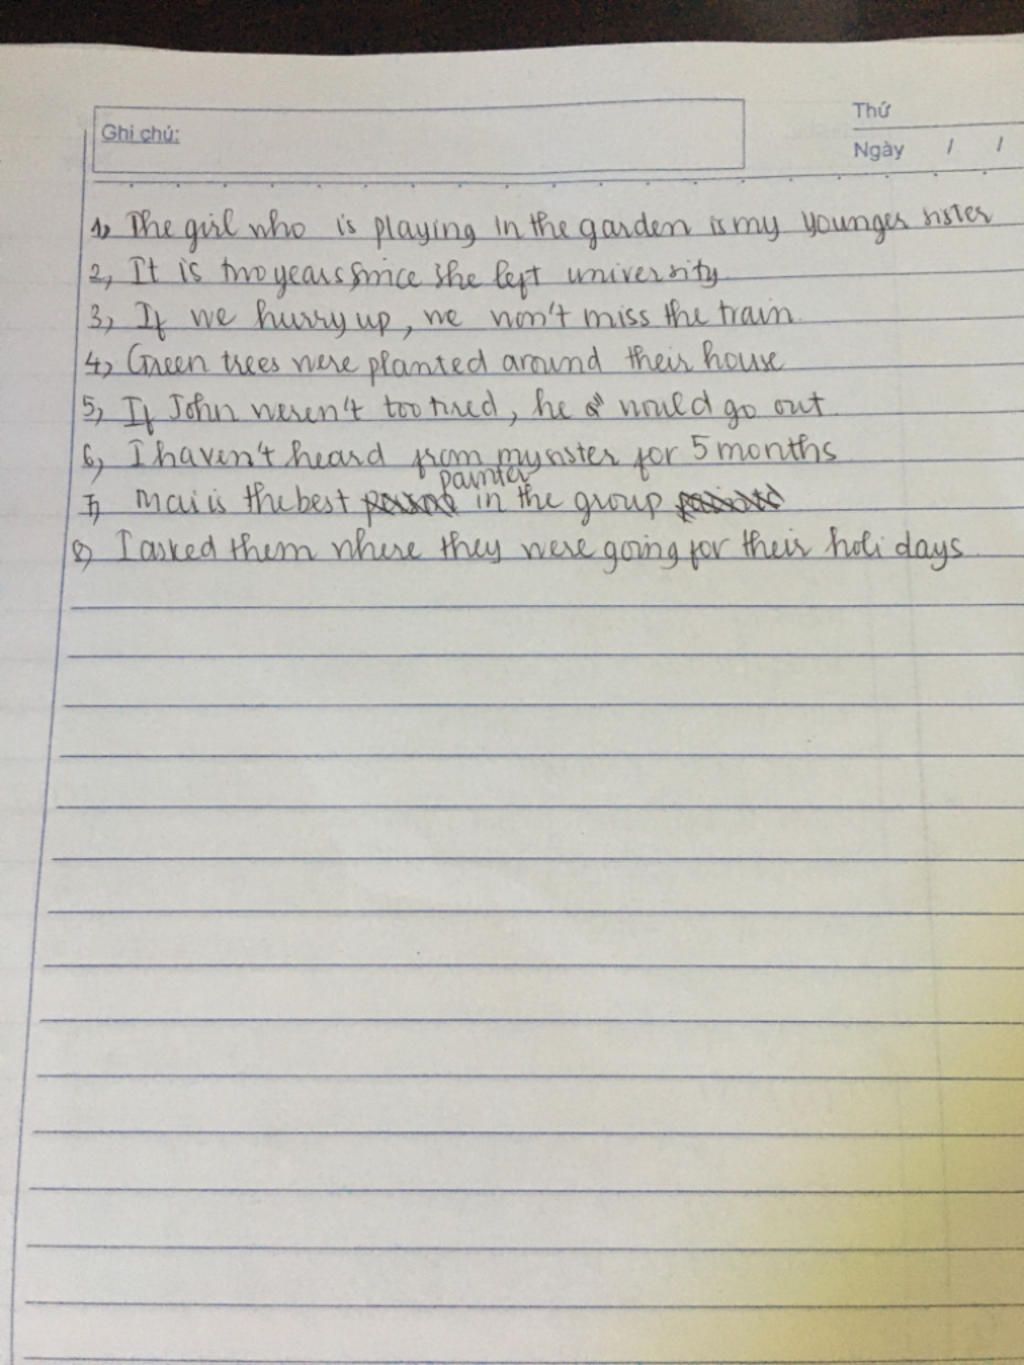 Ghi chú:
Thứ
Ngày / /
1, The girl who is playing in the garden is my younger sister
2, It is two years since she left university
3, If we hurry up, we won't miss the train
4, Green trees were planted around their house
5, If John weren't too tired, he would go out
6, I haven't heard from my sister for 5 months
painter
7, Mai is the best in the group
8, I asked them where they were going for their holidays